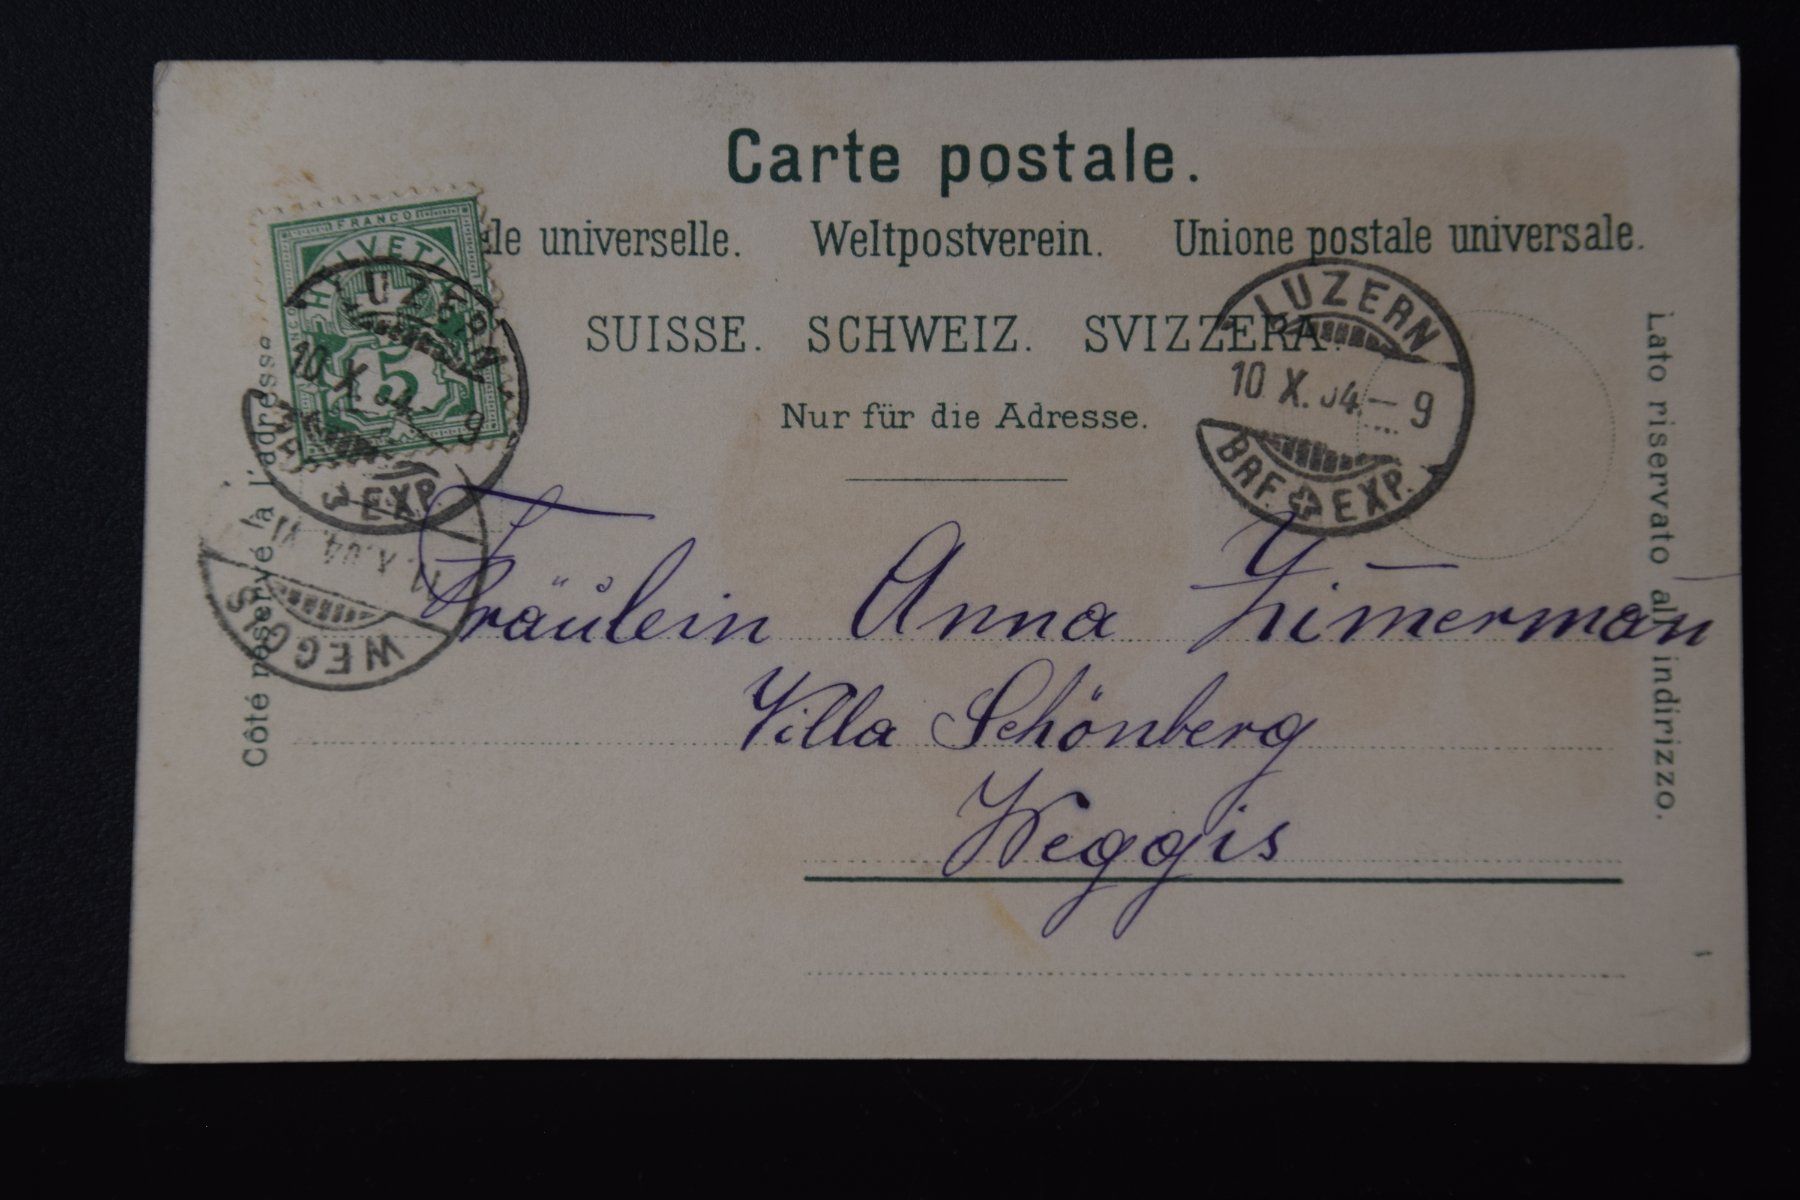 Carte postale.
ale universelle. Weltpostverein. Unione postale universale.
SUISSE. SCHWEIZ. SVIZZERA.
Nur für die Adresse.
FRANCO
HELVETIA
5
LUZERN
10 X. 04. - 9
EXP.
LUZERN
10 X. 04. - 9
BRF. EXP.
WEGGIS
Côté réservé à l'adresse
Lato riservato all indirizzo.
Fräulein Anna Zimerman
Villa Schönberg
Weggis